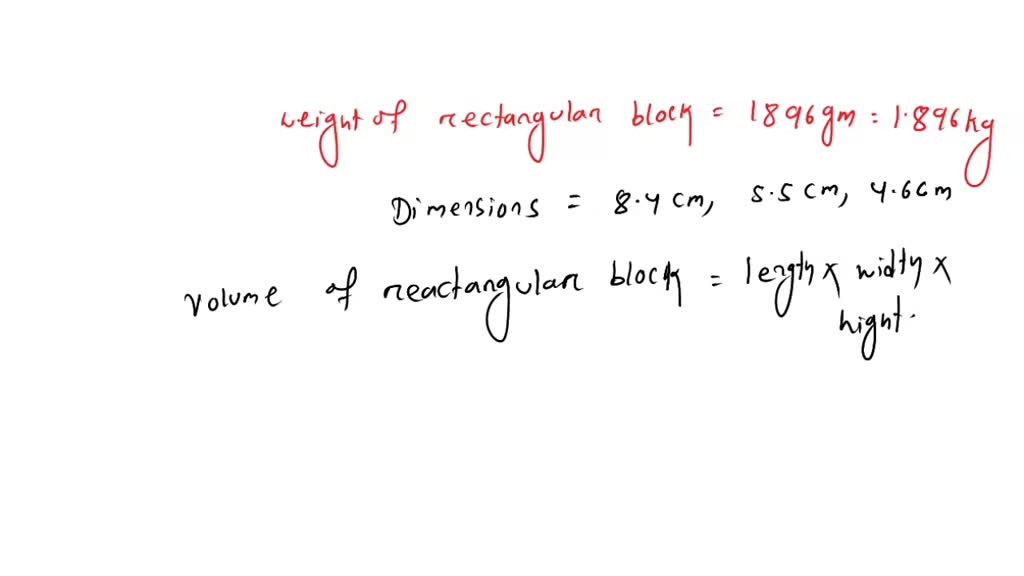 weight of rectangular block = 1896gm = 1.896kg
Dimensions = 8.4 cm, 5.5 cm, 4.6 cm
volume of reactangular block = length x width x
hight.